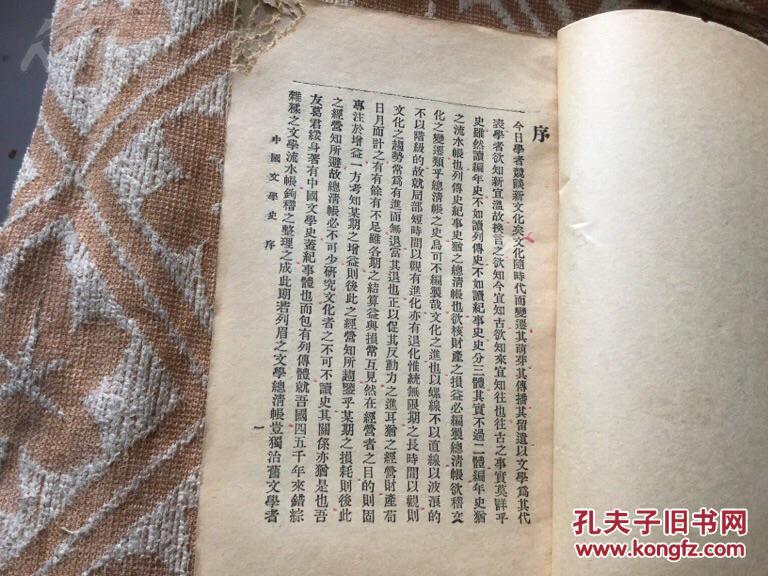 序
今日學者競談新文化矣文化隨時代而變遷其萌芽其傳播其留遺以文學爲其代
表學者欲知新宜溫故換言之欲知今宜知古欲知來宜知往也往古之事實莫詳乎
史雖然讀編年史不如讀列傳史不如讀紀事史史分三體其實不過二體編年史猶
之流水帳也列傳史紀事史猶之總清帳也欲核財產之損益必編製總清帳欲稽文
化之變遷類乎總清帳之史烏可不編製哉文化之進也以螺線不以直線以波浪的
不以階級的故就局部短時間以觀有進化亦有退化惟統無限期之長時間以觀則
文化之趨勢常爲有進而無退當其退也正以促其反動力之進耳猶之經營財產苟
日月而計之有有餘有不足雖各期之結算益與損常互見然在經營者之目的則固
專注於增益一方考知某期之增益則後此之經營知所趨鑒乎某期之損耗則後此
之經營知所避故總清帳必不可少研究文化者之不可不讀史其關係亦猶是也吾
友葛君綏身著有中國文學史蓋紀事體也而包有列傳體就吾國四五千年來錯綜
雜糅之文學流水帳鈎稽之整理之成此朗若列眉之文學總清帳豈獨治舊文學者
中國文學史 序
一
孔夫子旧书网
www.kongfz.com